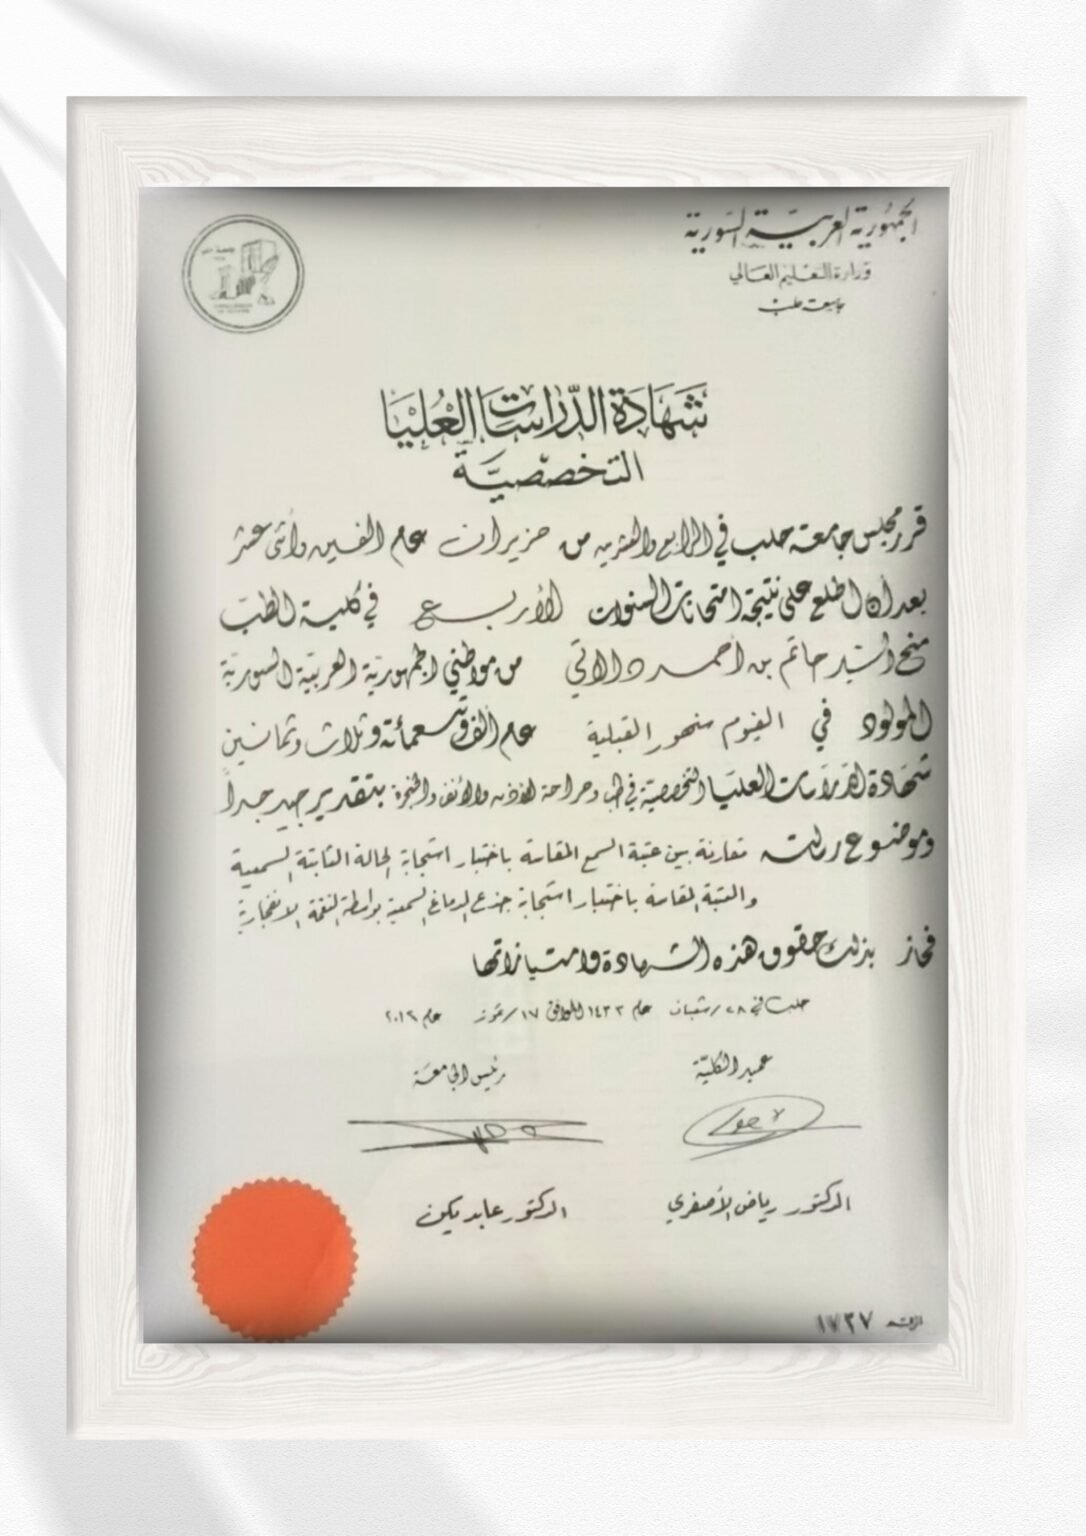 الجمهورية العربية السورية
وزارة التعليم العالي
جامعة حلب
شهادة الدراسات العليا
التخصصية
قرر مجلس جامعة حلب في الرابع والعشرين من حزيران عام ألفين وأثنى عشر
بعد أن اطلع على نتيجة امتحانات السنوات الأربع في كلية الطب
منح السيد حاتم بن أحمد دالاتي من مواطني الجمهورية العربية السورية
المولود في الفيوم سنحور القبلية عام ألف وتسعمائة وثلاث وثمانين
شهادة الدراسات العليا التخصصية في طب وجراحة الأذن والأنف والحنجرة بتقدير جيد جداً
وموضوع رسالته مقارنة بين عتبة السمع المقاسة باختبار استجابة الحالة الثابتة السمعية
والعتبة المقاسة باختبار استجابة جذع الدماغ السمعية بواسطة النغمة الانفجارية
فحاز بذلك حقوق هذه الشهادة وامتيازاتها
حلب في ٢٨/شعبان عام ١٤٣٣ الموافق ١٧/تموز عام ٢٠١٢
عميد الكلية
رئيس الجامعة
الدكتور رياض الأصفري
الدكتور عابد يكن
الرقم ١٧٣٧